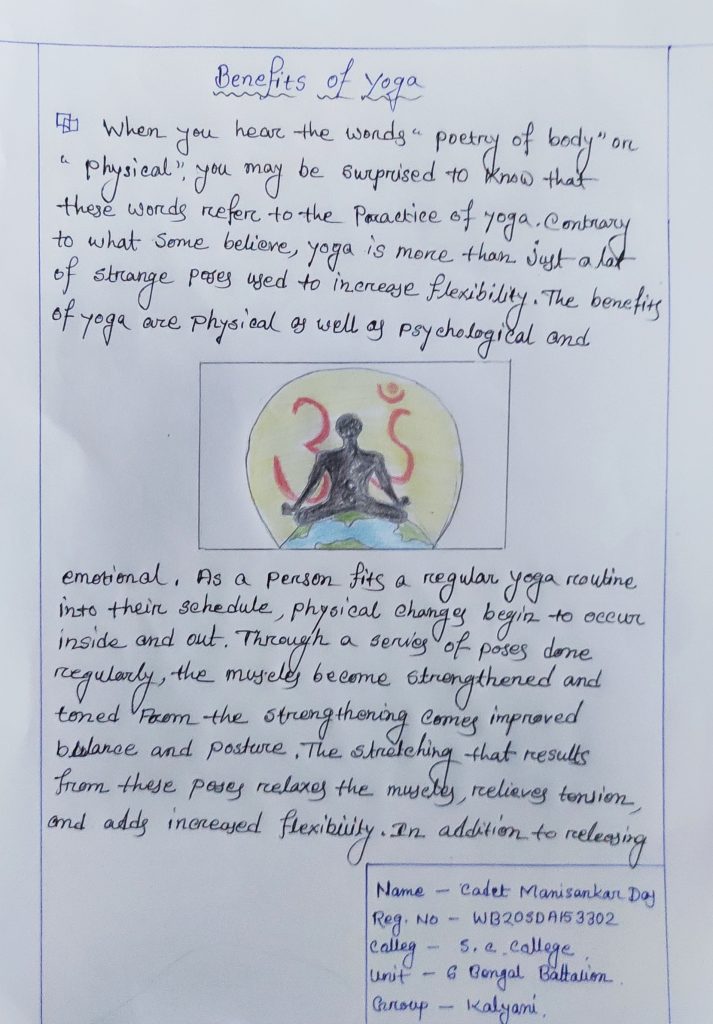 Benefits of Yoga
When you hear the words "poetry of body" or
"physical", you may be surprised to know that
these words refer to the Practice of yoga. Contrary
to what some believe, yoga is more than just a lot
of strange poses used to increase flexibility. The benefits
of yoga are physical as well as psychological and
ॐ
emotional. As a person fits a regular yoga routine
into their schedule, physical changes begin to occur
inside and out. Through a series of poses done
regularly, the muscles become strengthened and
toned From the strengthening comes improved
balance and posture. The stretching that results
from these poses relaxes the muscles, relieves tension,
and adds increased flexibility. In addition to releasing
Name - Cadet Manisankar Das
Reg. No - WB20SDA153302
Colleg - S. C. College
Unit - 6 Bengal Battalion.
Group - Kalyani.